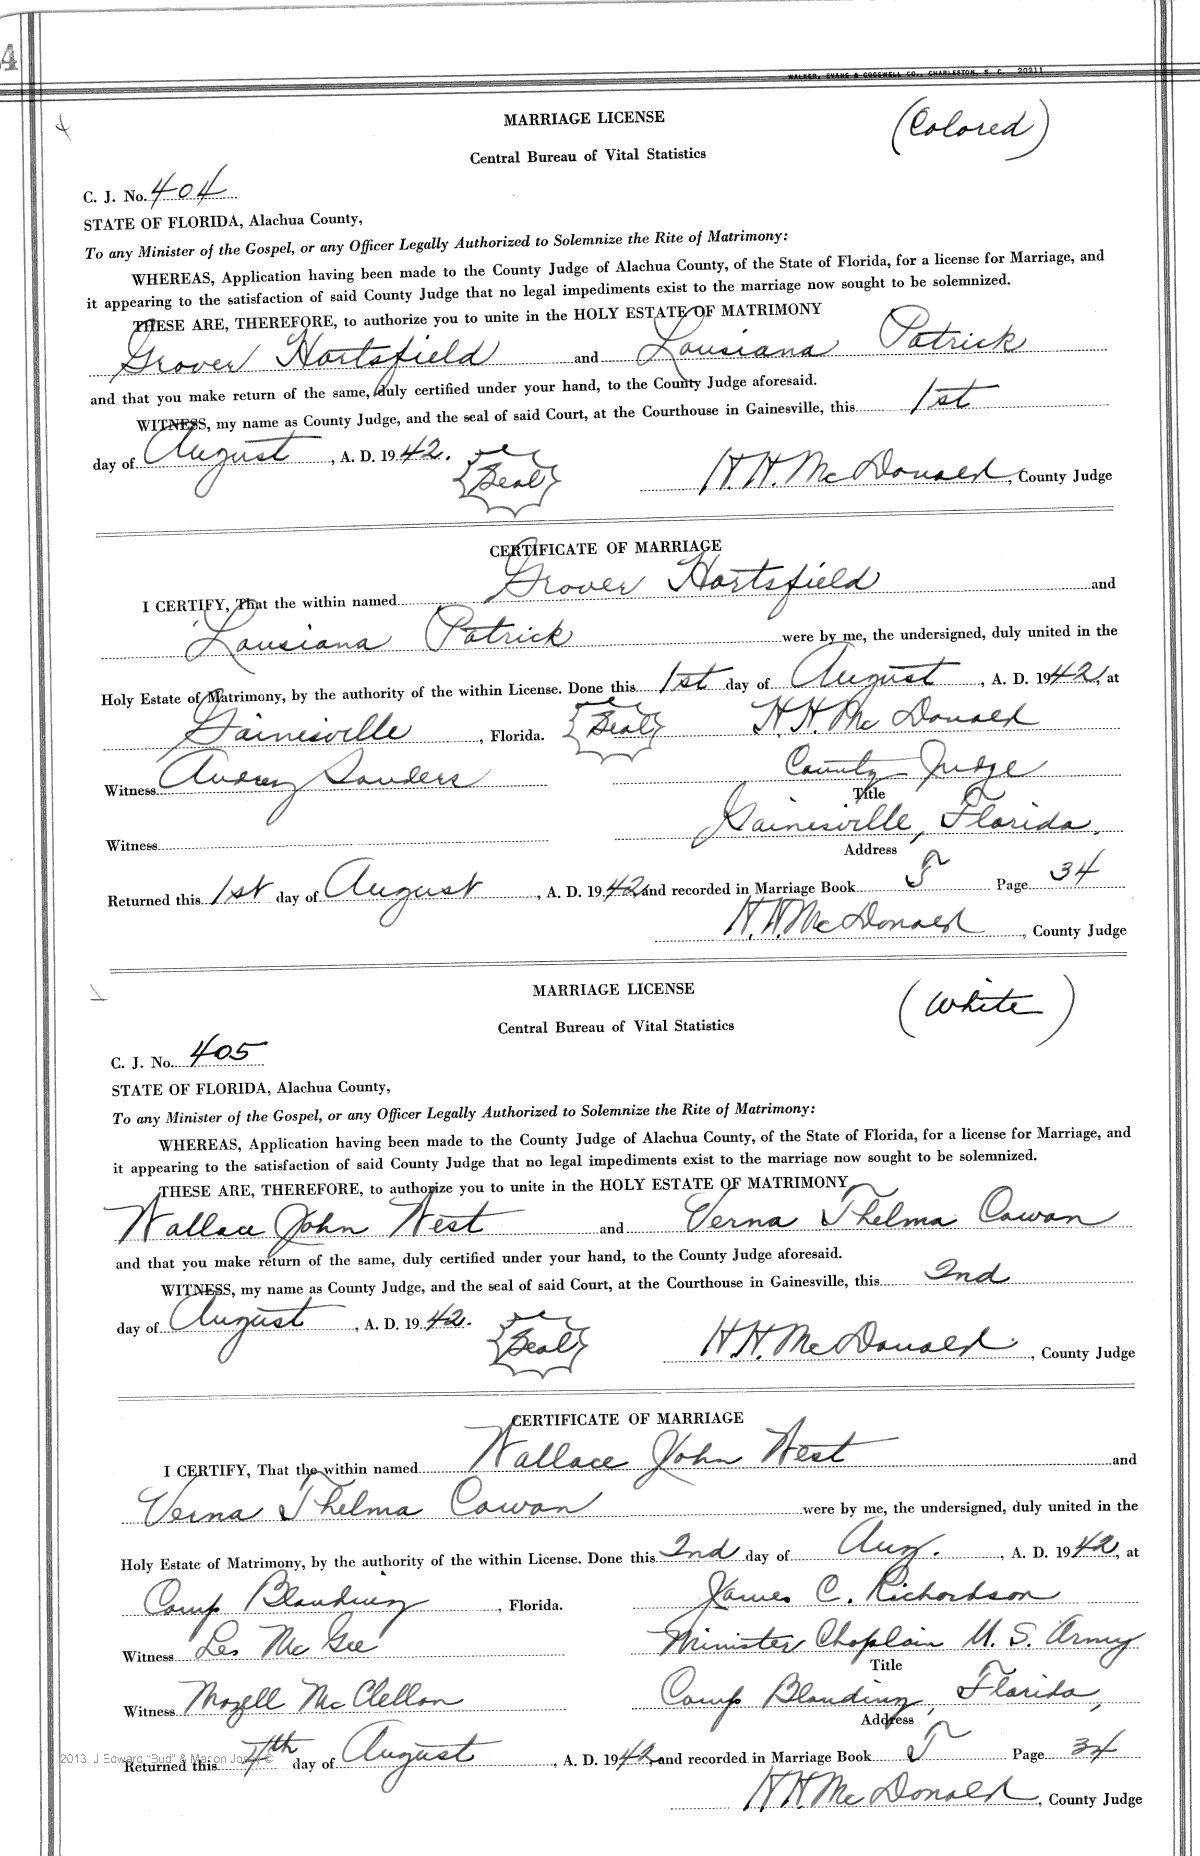 4
WALKER, EVANS & COGSWELL CO., CHARLESTON, S. C. 20211
MARRIAGE LICENSE
(Colored)
Central Bureau of Vital Statistics
C. J. No. 404
STATE OF FLORIDA, Alachua County,
To any Minister of the Gospel, or any Officer Legally Authorized to Solemnize the Rite of Matrimony:
WHEREAS, Application having been made to the County Judge of Alachua County, of the State of Florida, for a license for Marriage, and
it appearing to the satisfaction of said County Judge that no legal impediments exist to the marriage now sought to be solemnized.
THESE ARE, THEREFORE, to authorize you to unite in the HOLY ESTATE OF MATRIMONY
Grover Hartsfield and Lousiana Patrick
and that you make return of the same, duly certified under your hand, to the County Judge aforesaid.
WITNESS, my name as County Judge, and the seal of said Court, at the Courthouse in Gainesville, this 1st
day of August, A. D. 1942. Seal H. H. McDonald, County Judge
CERTIFICATE OF MARRIAGE
I CERTIFY, That the within named Grover Hartsfield and
Lousiana Patrick were by me, the undersigned, duly united in the
Holy Estate of Matrimony, by the authority of the within License. Done this 1st day of August, A. D. 1942, at
Gainesville, Florida. Seal H. H. McDonald
Witness Audrey Sanders County Judge
Title
Witness Gainesville, Florida.
Address
Returned this 1st day of August, A. D. 1942, and recorded in Marriage Book T Page 34
H. H. McDonald, County Judge
MARRIAGE LICENSE
(White)
Central Bureau of Vital Statistics
C. J. No. 405
STATE OF FLORIDA, Alachua County,
To any Minister of the Gospel, or any Officer Legally Authorized to Solemnize the Rite of Matrimony:
WHEREAS, Application having been made to the County Judge of Alachua County, of the State of Florida, for a license for Marriage, and
it appearing to the satisfaction of said County Judge that no legal impediments exist to the marriage now sought to be solemnized.
THESE ARE, THEREFORE, to authorize you to unite in the HOLY ESTATE OF MATRIMONY
Wallace John West and Verna Thelma Cowan
and that you make return of the same, duly certified under your hand, to the County Judge aforesaid.
WITNESS, my name as County Judge, and the seal of said Court, at the Courthouse in Gainesville, this 2nd
day of August, A. D. 1942. Seal H. H. McDonald, County Judge
CERTIFICATE OF MARRIAGE
I CERTIFY, That the within named Wallace John West and
Verna Thelma Cowan were by me, the undersigned, duly united in the
Holy Estate of Matrimony, by the authority of the within License. Done this 2nd day of Aug., A. D. 1942, at
Camp Blanding, Florida. James C. Richardson
Witness Les McGee Minister Chaplain U. S. Army
Title
Witness Mozell McClellan Camp Blanding, Florida,
Address
2013 J Edward "Bud" & Marion Jones ©
Returned this 7th day of August, A. D. 1942, and recorded in Marriage Book T Page 34
H. H. McDonald, County Judge